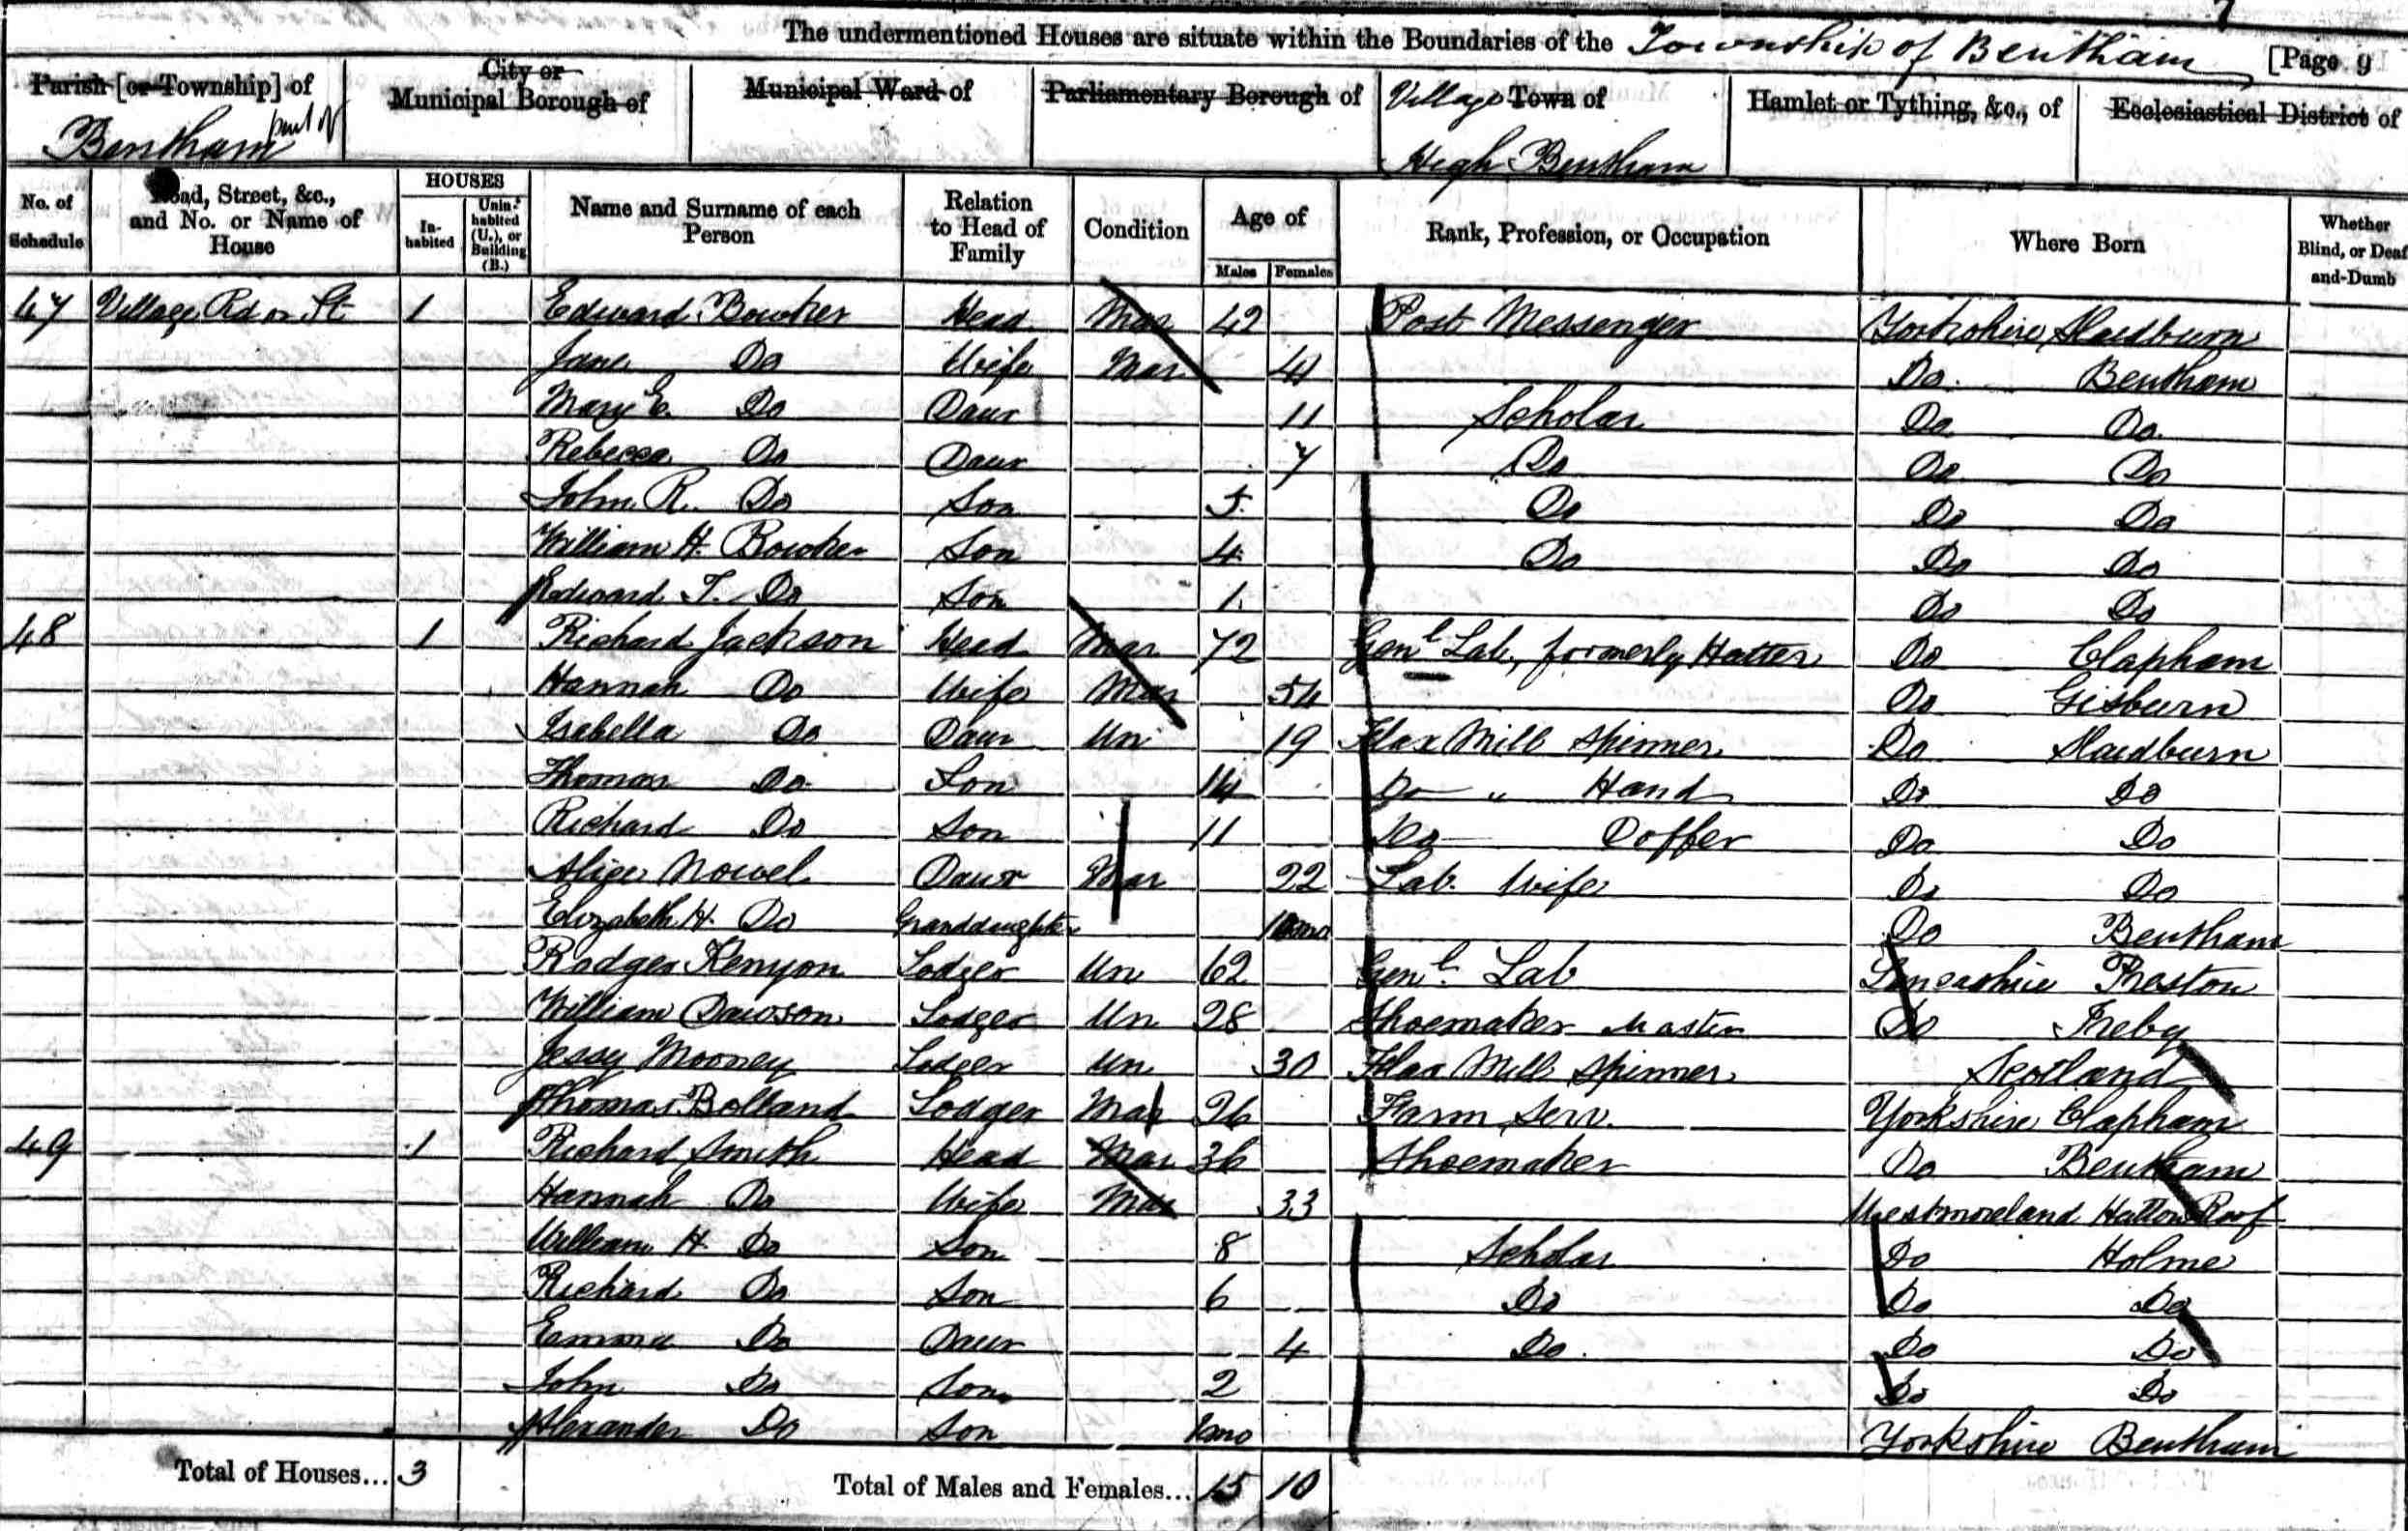 7
The undermentioned Houses are situate within the Boundaries of the Township of Bentham [Page 9
Parish [or Township] of
part of
Bentham
City or
Municipal Borough of
Municipal Ward of
Parliamentary Borough of
Village Town of
High Bentham
Hamlet or Tything, &c., of
Ecclesiastical District of
No. of Schedule
Road, Street, &c., and No. or Name of House
HOUSES
In-habited
Unin-habited (U.), or Building (B.)
Name and Surname of each Person
Relation to Head of Family
Condition
Age of
Males
Females
Rank, Profession, or Occupation
Where Born
Whether Blind, or Deaf-and-Dumb
47 Village Rd or St 1 Edward Bowker Head Mar 42 Post Messenger Yorkshire Slaidburn
Jane Do Wife Mar 41 Do Bentham
Mary E. Do Daur 11 Scholar Do Do
Rebecca Do Daur 7 Do Do Do
John R. Do Son 5 Do Do Do
William H. Bowker Son 4 Do Do Do
Edward T. Do Son 1 Do Do
48 1 Richard Jackson Head Mar 72 Genl Lab, formerly Hatter Do Clapham
Hannah Do Wife Mar 54 Do Gisburn
Isabella Do Daur Un 19 Flax Mill Spinner Do Slaidburn
Thomas Do Son 14 Do " Hand Do Do
Richard Do Son 11 Do Doffer Do Do
Alice Nowel Daur Mar 22 Lab. Wife Do Do
Elizabeth H. Do Granddaughter Do Bentham
Rodger Kenyon Lodger Un 62 Genl. Lab Lancashire Preston
William Dawson Lodger Un 28 Shoemaker Master Do
Jessy Mooney Lodger Un 30 Flax Mill Spinner Scotland
Thomas Bolland Lodger Mar 26 Farm Serv. Yorkshire Clapham
49 1 Richard Smith Head Mar 36 Shoemaker Do Bentham
Hannah Do Wife Mar 33 Westmoreland Hutton Roof
William H. Do Son 8 Scholar Do Holme
Richard Do Son 6 Do Do Do
Emma Do Daur 4 Do. Do Do
John Do Son 2 Do Do
Alexander Do Son Yorkshire Bentham
Total of Houses... 3 Total of Males and Females... 15 10